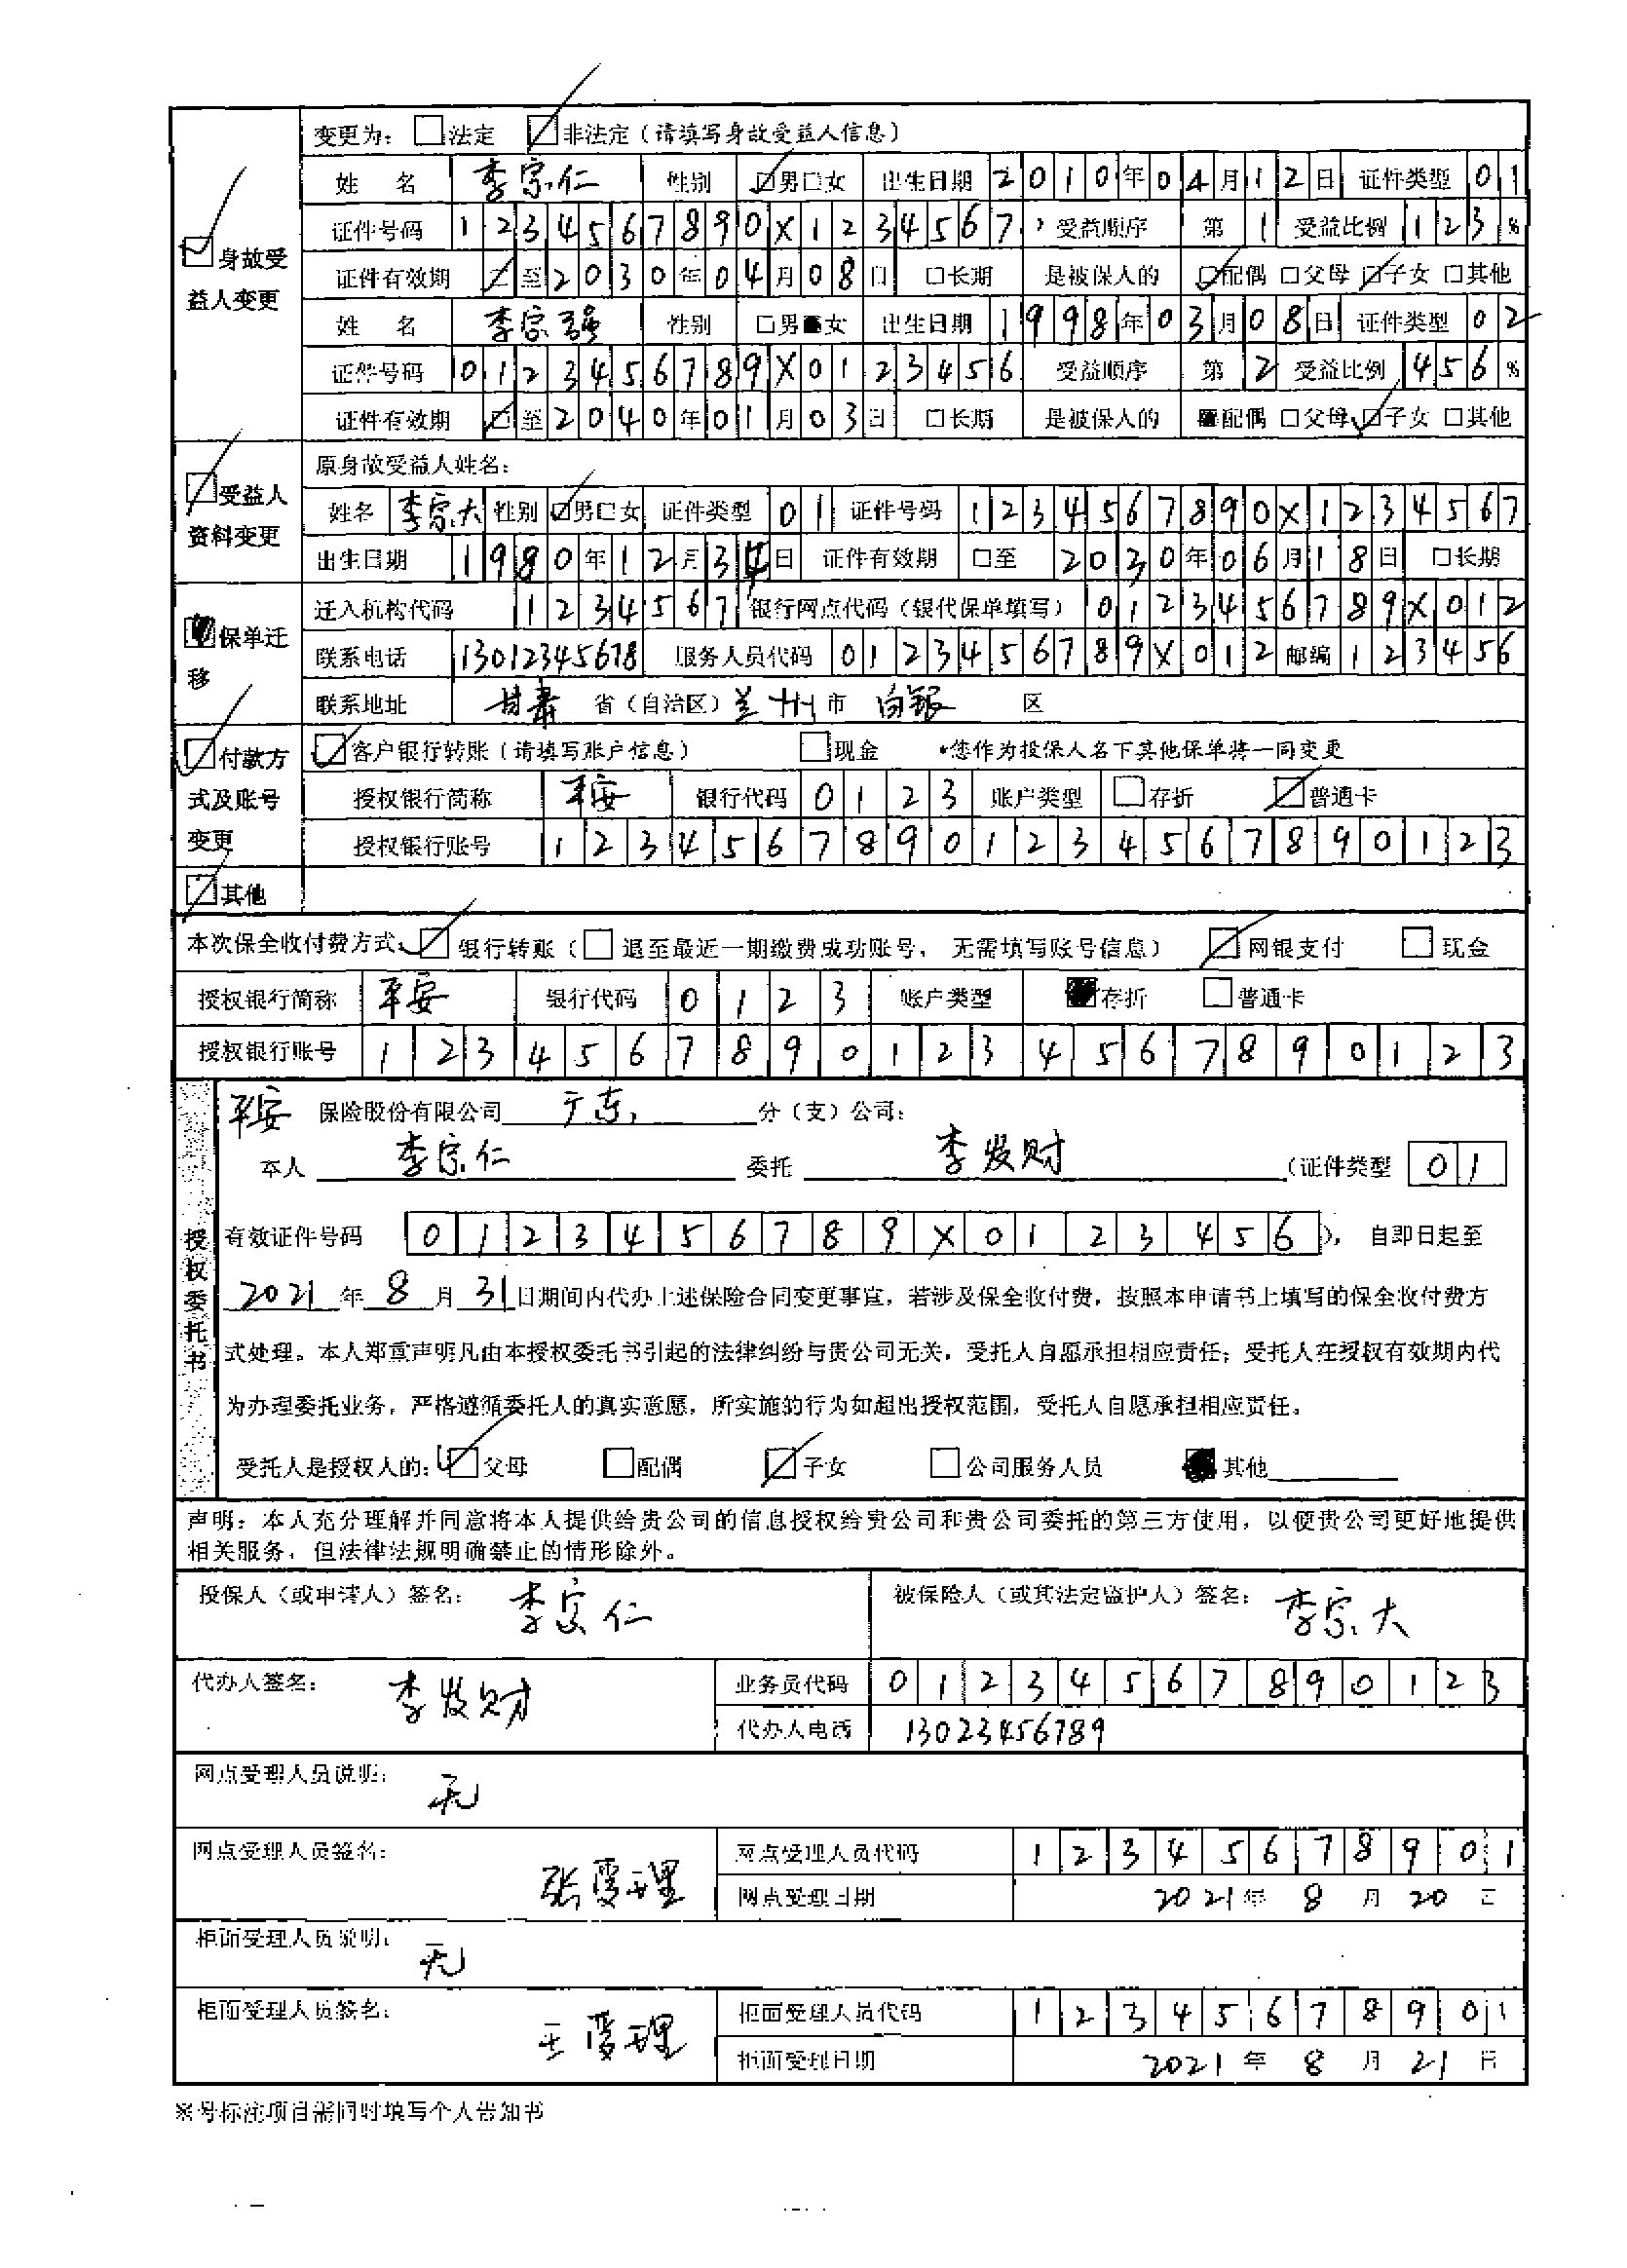 变更为：□法定 ☑非法定（请填写身故受益人信息）
☑身故受益人变更
姓 名 李宗仁 性别 ☑男□女 出生日期 2010年04月12日 证件类型 01
证件号码 1234567890X1234567 受益顺序 第1 受益比例 123%
证件有效期 ☑至2030年04月08日 □长期 是被保人的 ☑配偶 □父母 ☑子女 □其他
姓 名 李宗强 性别 □男■女 出生日期 1998年03月08日 证件类型 02
证件号码 0123456789X0123456 受益顺序 第2 受益比例 456%
证件有效期 ☑至2040年01月03日 □长期 是被保人的 ■配偶 □父母 ☑子女 □其他
☑受益人资料变更
原身故受益人姓名：
姓名 李宗大 性别 ☑男□女 证件类型 01 证件号码 1234567890X1234567
出生日期 1980年12月34日 证件有效期 □至 2030年06月18日 □长期
■保单迁移
迁入机构代码 1234567 银行网点代码（银代保单填写） 0123456789X012
联系电话 13012345678 服务人员代码 0123456789X012 邮编 123456
联系地址 甘肃 省（自治区）兰州 市 白银 区
☑付款方式及账号变更
☑客户银行转账（请填写账户信息） □现金 *您作为投保人名下其他保单将一同变更
授权银行简称 平安 银行代码 0123 账户类型 □存折 ☑普通卡
授权银行账号 12345678901234567890123
☑其他
本次保全收付费方式：☑银行转账（□退至最近一期缴费成功账号，无需填写账号信息） ☑网银支付 □现金
授权银行简称 平安 银行代码 0123 账户类型 ■存折 □普通卡
授权银行账号 12345678901234567890123
授权委托书
平安 保险股份有限公司 广东 分（支）公司：
本人 李宗仁 委托 李发财 （证件类型 01
有效证件号码 0123456789X0123456 ），自即日起至
2021 年 8 月 31 日期间内代办上述保险合同变更事宜，若涉及保全收付费，按照本申请书上填写的保全收付费方
式处理。本人郑重声明凡由本授权委托书引起的法律纠纷与贵公司无关，受托人自愿承担相应责任；受托人在授权有效期内代
为办理委托业务，严格遵循委托人的真实意愿，所实施的行为如超出授权范围，受托人自愿承担相应责任。
受托人是授权人的：☑父母 □配偶 ☑子女 □公司服务人员 ■其他
声明：本人充分理解并同意将本人提供给贵公司的信息授权给贵公司和贵公司委托的第三方使用，以便贵公司更好地提供
相关服务，但法律法规明确禁止的情形除外。
投保人（或申请人）签名： 李宗仁 被保险人（或其法定监护人）签名： 李宗大
代办人签名： 李发财 业务员代码 01234567890123
代办人电话 13023456789
网点受理人员说明： 无
网点受理人员签名： 张受理 网点受理人员代码 12345678901
网点受理日期 2021年 8 月 20 日
柜面受理人员说明： 无
柜面受理人员签名： 王受理 柜面受理人员代码 12345678901
柜面受理日期 2021 年 8 月 21 日
※号标注项目需同时填写个人告知书